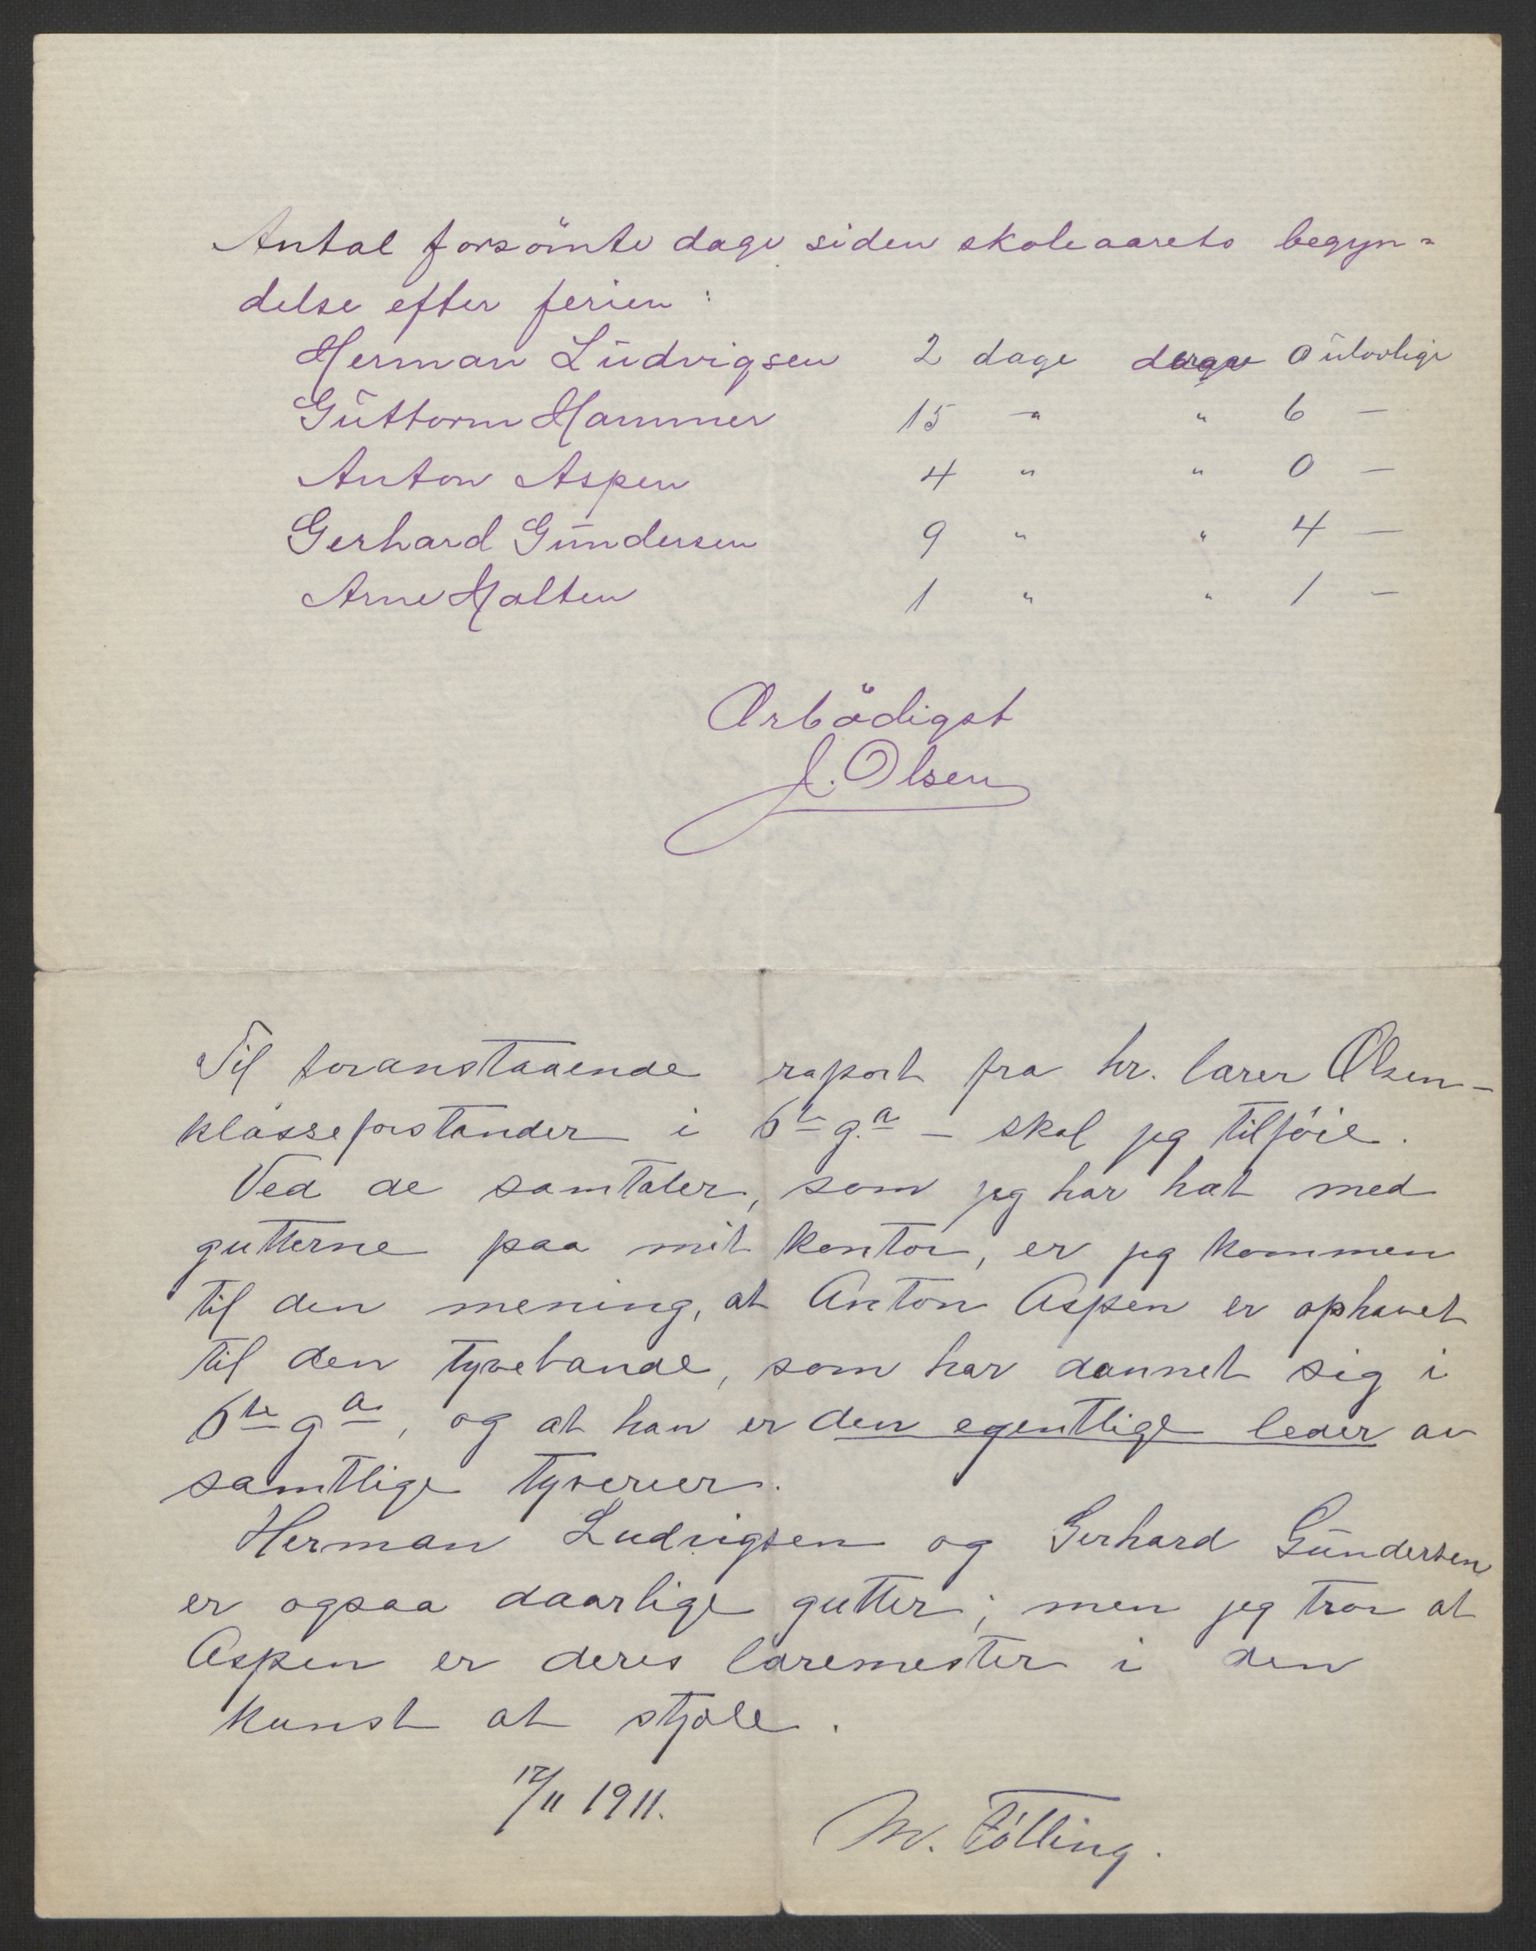 Antal forsömte dage siden skoleaarets begyn=
delse efter ferien:
Herman Ludvigsen 2 dage derav 0 ulovlige
Guttorm Hammer 15 -"- " 6 —
Anton Aspen 4 " " 0 —
Gerhard Gundersen 9 " " 4 —
Arne Holten 1 " " 1 —
Ærbödigst
J. Olsen
Til foranstaaende raport fra hr. lærer Olsen —
klasseforstander i 6te g.a — skal jeg tilföie.
Ved de samtaler, som jeg har hat med
gutterne paa mit kontor, er jeg kommen
til den mening, at Anton Aspen er ophavet
til den tyvebande, som har dannet sig i
6te ga, og at han er den egentlige leder av
samtlige tyverier.
Herman Ludvigsen og Gerhard Gundersen
er ogsaa daarlige gutter; men jeg tror at
Aspen er deres læremester i den
kunst at stjæle.
17/11 1911.
M. Fölling.